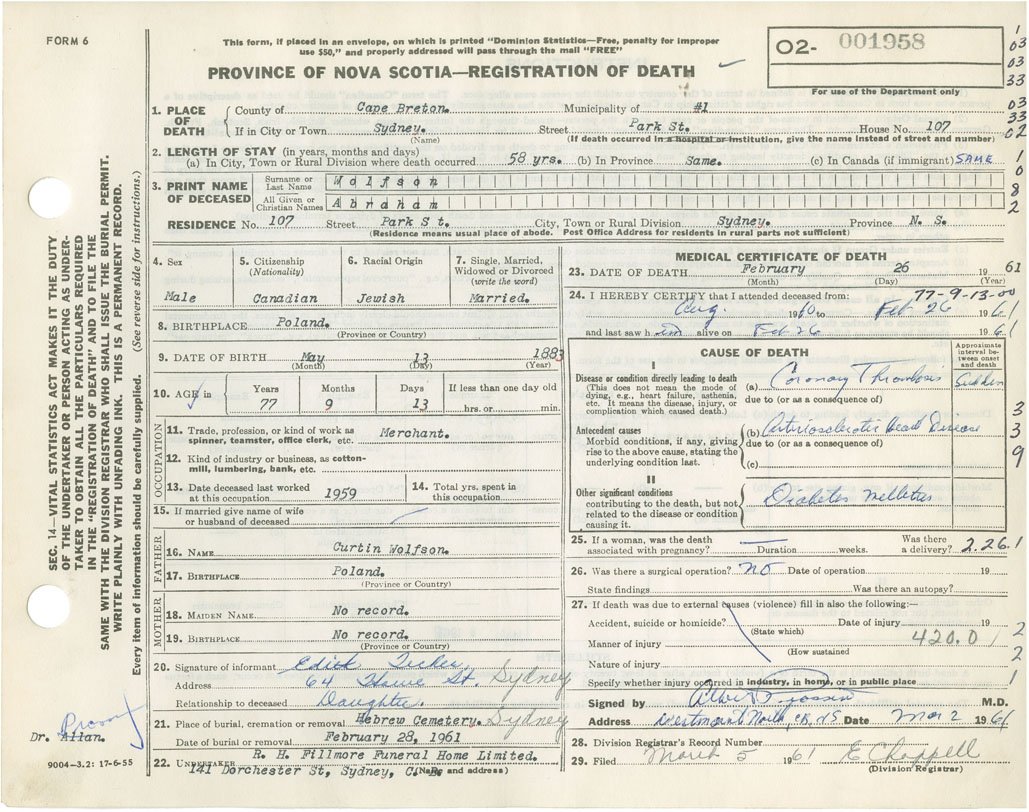 FORM 6
This form, if placed in an envelope, on which is printed "Dominion Statistics—Free, penalty for improper
use $50," and properly addressed will pass through the mail "FREE"
O2- 001958
PROVINCE OF NOVA SCOTIA—REGISTRATION OF DEATH
For use of the Department only
1. PLACE OF DEATH
County of Cape Breton. Municipality of #1
If in City or Town Sydney. Street Park St. House No. 107
(Name) (If death occurred in a hospital or institution, give the name instead of street and number)
2. LENGTH OF STAY (in years, months and days)
(a) In City, Town or Rural Division where death occurred 58 yrs. (b) In Province Same. (c) In Canada (if immigrant) SAME
3. PRINT NAME OF DECEASED
Surname or Last Name Wolfson
All Given or Christian Names Abraham
RESIDENCE No. 107 Street Park St. City, Town or Rural Division Sydney. Province N. S.
(Residence means usual place of abode. Post Office Address for residents in rural parts not sufficient)
4. Sex
Male
5. Citizenship
(Nationality)
Canadian
6. Racial Origin
Jewish
7. Single, Married,
Widowed or Divorced
(write the word)
Married.
8. BIRTHPLACE Poland.
(Province or Country)
9. DATE OF BIRTH May 13 1883
(Month) (Day) (Year)
10. AGE in
Years Months Days If less than one day old
77 9 13 hrs. or min.
OCCUPATION
11. Trade, profession, or kind of work as
spinner, teamster, office clerk, etc. Merchant.
12. Kind of industry or business, as cotton-
mill, lumbering, bank, etc.
13. Date deceased last worked
at this occupation 1959
14. Total yrs. spent in
this occupation
15. If married give name of wife
or husband of deceased
FATHER
16. NAME Curtin Wolfson.
17. BIRTHPLACE Poland.
(Province or Country)
MOTHER
18. MAIDEN NAME No record.
19. BIRTHPLACE No record.
(Province or Country)
20. Signature of informant
Address 64 St. Sydney
Relationship to deceased Daughter.
21. Place of burial, cremation or removal Hebrew Cemetery. Sydney
Date of burial or removal February 28, 1961
22. UNDERTAKER R. H. Fillmore Funeral Home Limited.
141 Dorchester St, Sydney, C.B.
(Name and address)
MEDICAL CERTIFICATE OF DEATH
23. DATE OF DEATH February 26 1961
(Month) (Day) (Year)
24. I HEREBY CERTIFY that I attended deceased from: 77-9-13-00
Aug. 1960 to Feb 26 1961
and last saw him alive on Feb 26 1961
CAUSE OF DEATH
Approximate
interval be-
tween onset
and death
I
Disease or condition directly leading to death
(This does not mean the mode of
dying, e.g., heart failure, asthenia,
etc. It means the disease, injury, or
complication which caused death.)
(a) Coronary Thrombosis Sudden
due to (or as a consequence of)
Antecedent causes
Morbid conditions, if any, giving
rise to the above cause, stating the
underlying condition last.
(b) Arteriosclerotic Heart Disease
due to (or as a consequence of)
(c)
II
Other significant conditions
contributing to the death, but not
related to the disease or condition
causing it.
Diabetes Mellitus
25. If a woman, was the death
associated with pregnancy? Duration weeks. Was there
a delivery? 2.26.1
26. Was there a surgical operation? NO Date of operation 19
State findings Was there an autopsy?
27. If death was due to external causes (violence) fill in also the following:—
Accident, suicide or homicide? Date of injury 19
(State which)
Manner of injury 420.0
(How sustained
Nature of injury
Specify whether injury occurred in industry, in home, or in public place
Signed by M.D.
Address Westmount North, CB, NS Date Mar 2 1961
28. Division Registrar's Record Number
29. Filed March 5 1961 E Chappell
(Division Registrar)
SEC. 14—VITAL STATISTICS ACT MAKES IT THE DUTY
OF THE UNDERTAKER OR PERSON ACTING AS UNDER-
TAKER TO OBTAIN ALL THE PARTICULARS REQUIRED
IN THE "REGISTRATION OF DEATH" AND TO FILE THE
SAME WITH THE DIVISION REGISTRAR WHO SHALL ISSUE THE BURIAL PERMIT.
WRITE PLAINLY WITH UNFADING INK. THIS IS A PERMANENT RECORD.
Every item of information should be carefully supplied. (See reverse side for instructions.)
Dr. Allan.
9004—3.2: 17-6-55
1
03
03
33
03
33
02
1
0
8
2
3
3
9
1
2
2
1